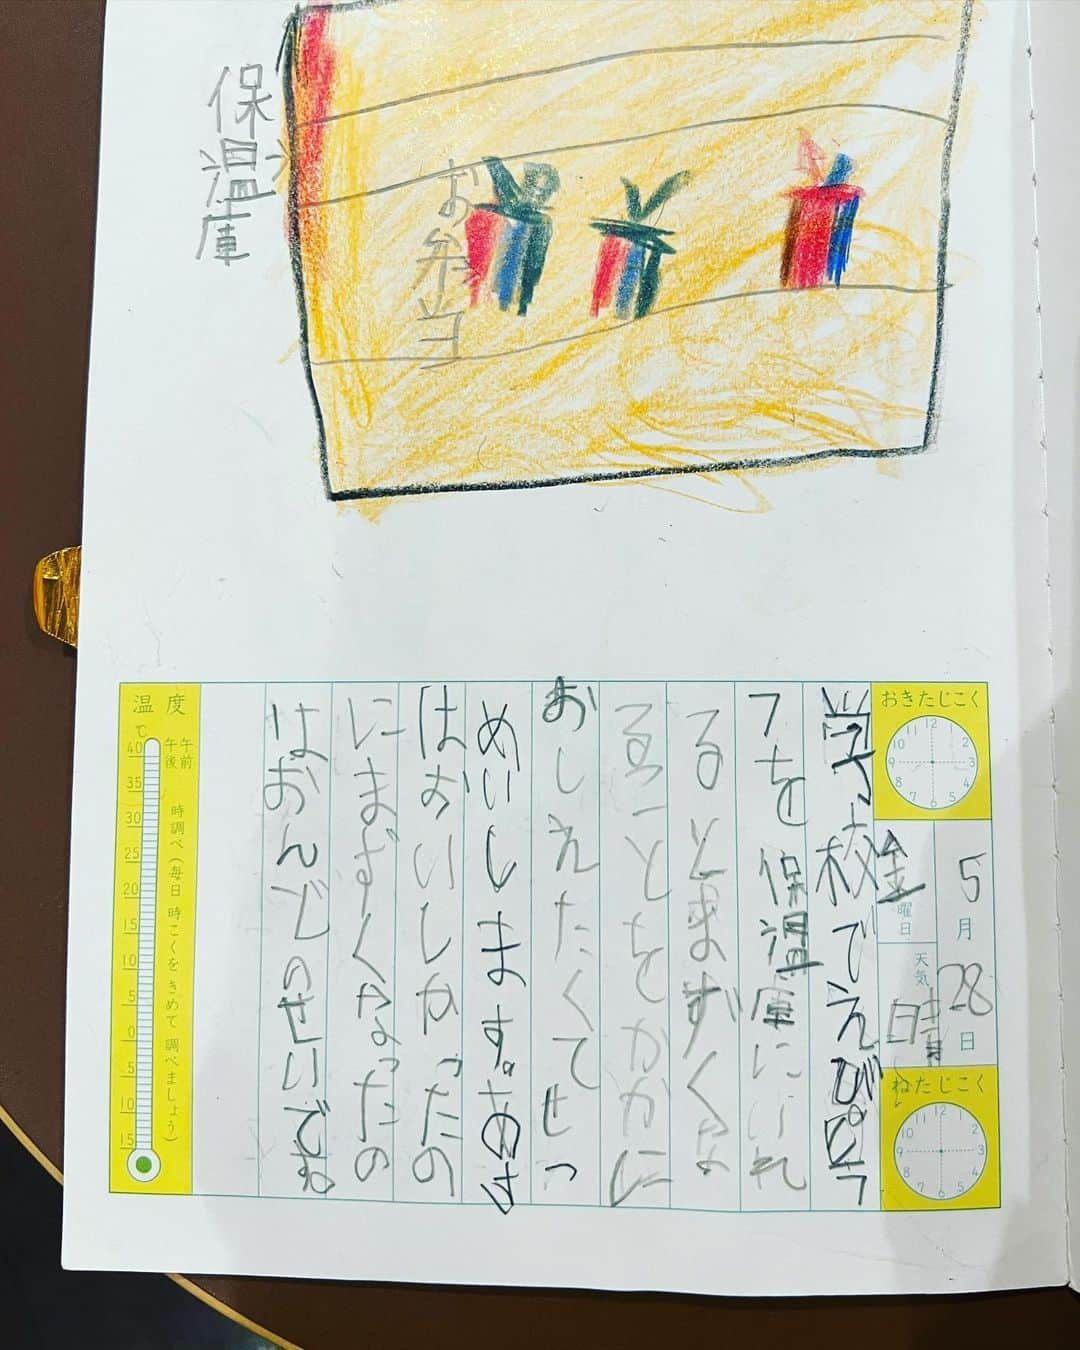 保温庫
お弁当
おきたじこく
5月28日
金曜日
天気 晴
ねたじこく
学校でえぴピラ
フを保温庫にいれ
るとまずくな
ることをかかに
おしえたくてせつ
めいします。あさ
はおいしかったの
にまずくなったの
はおんどのせいでね
温度
℃
午前
午後
時調べ(毎日 時こくを きめて 調べましょう)
40
35
30
25
20
15
10
5
0
5
10
15